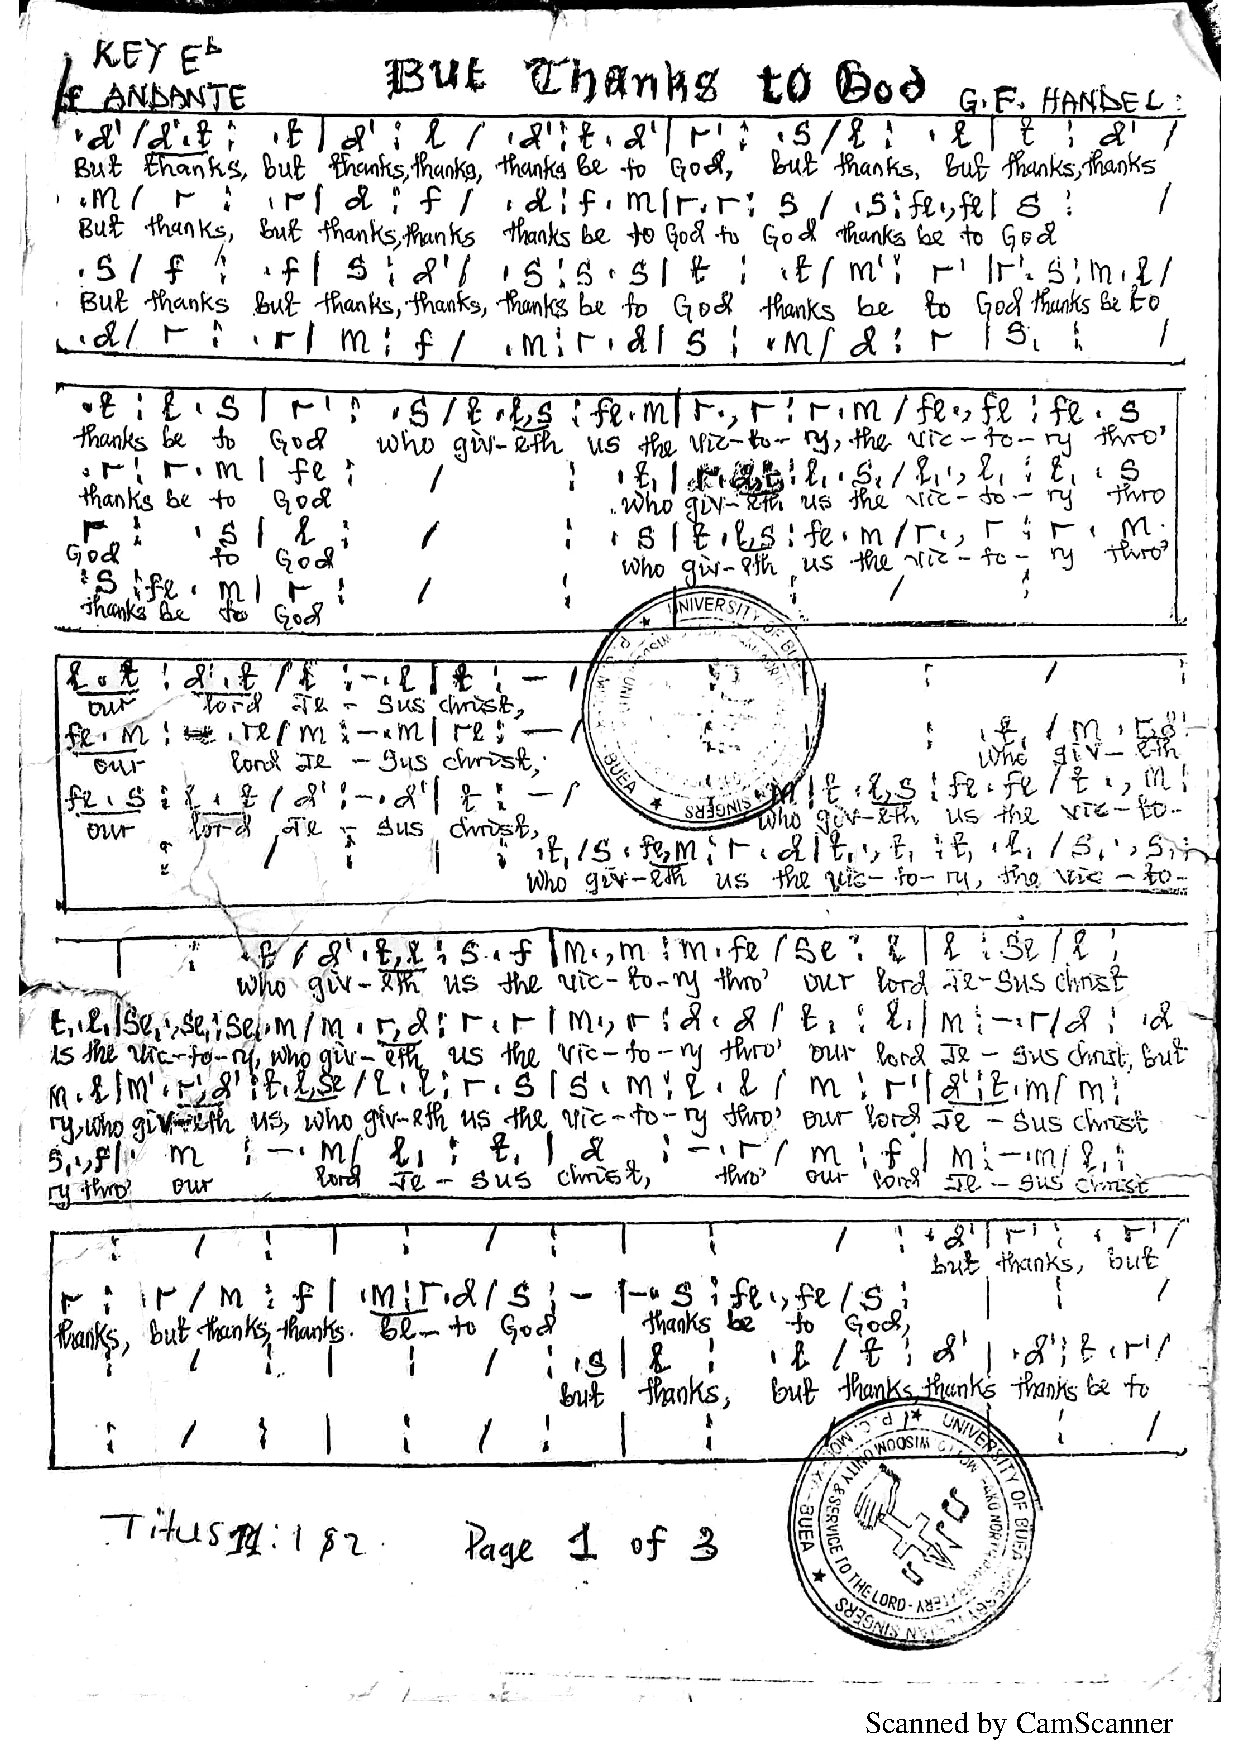 KEY E♭
But Thanks to God
f ANDANTE
G.F. HANDEL:
.d'/d'.t : .t | d' : l / .d' : t.d' | r' : .s / l : .l | t : d' /
But thanks, but thanks, thanks, thanks be to God, but thanks, but thanks, thanks
.m / r : .r | d : f / .d : f.m | r.r : s / .s : fe.,fe | s : /
But thanks, but thanks, thanks thanks be to God to God thanks be to God
.s / f : .f | s : d' / .s : s.s | t : .t / m' : r' | r'.s : m.l /
But thanks but thanks, thanks, thanks be to God thanks be to God thanks be to
.d / r : .r | m : f / .m : r.d | s : .m / d : r | s, : /
.t : l.s | r' : .s / t.l,s : fe.m | r., r : r.m / fe., fe : fe.s
thanks be to God who giv-eth us the vic-to-ry, the vic-to-ry thro'
.r : r.m | fe : / : .t, | : l,.s, / l,., l, : t,.s
thanks be to God who giv-eth us the vic-to-ry thro
r : .s | l : / : .s | t.l,s : fe.m / r., r : r.m
God to God who giv-eth us the vic-to-ry thro'
.s : fe.m | r : / : : / :
thanks be to God
l.t : d'.t / l : -.l | t : - / : : /
our lord Je-sus christ,
fe.m : .re / m : -.m | re : - / : .t, / m.r,d
our lord Je-sus christ, who giv-eth
fe.s : l.t / d' : -.d' | t : - / m | t.l,s : fe.fe / t., m :
our lord Je-sus christ, who giv-eth us the vic-to-
: / : | : .t, / s.fe,m : r.d | t,., t, : t,.l, / s,., s, :
who giv-eth us the vic-to-ry, the vic-to-
: .t / d'.t,l : s.f | m., m : m.fe / se : l | l : se / l :
who giv-eth us the vic-to-ry thro' our lord Je-sus christ
t,.l, | se,., se, : se,.m / m.r,d : r.r | m., r : d.d / t, : l, | m : -.r / d : .d
is the vic-to-ry, who giv-eth us the vic-to-ry thro' our lord Je-sus christ, but
m.l | m'.r',d' : t.l,se / l.l : r.s | s.m : l.l / m : r' | d' : t.m / m :
ry, who giv-eth us, who giv-eth us the vic-to-ry thro' our lord Je-sus christ
s,., f | m : -.m / l, : t, | d : -.r / m : f | m : -.m / l, :
ry thro' our lord Je-sus christ, thro' our lord Je-sus christ
: / : | : / : | : / : .d' | r' : .r' /
but thanks, but
r : .r / m : f | .m : r.d / s : - | -.s : fe., fe / s : | : /
thanks, but thanks, thanks. be-to God thanks be to God,
: / : | : / : .s | l : .l / t : d' | .d' : t.r' /
but thanks, but thanks, thanks thanks be to
: / : | : / : | : : /
UNIVERSITY OF BUEA
SINGERS
BUEA
Titus 11:1 & 2.
Page 1 of 3
UNIVERSITY OF BUEA
SINGERS
BUEA
WISDOM UNITY & SERVICE TO THE LORD
Scanned by CamScanner